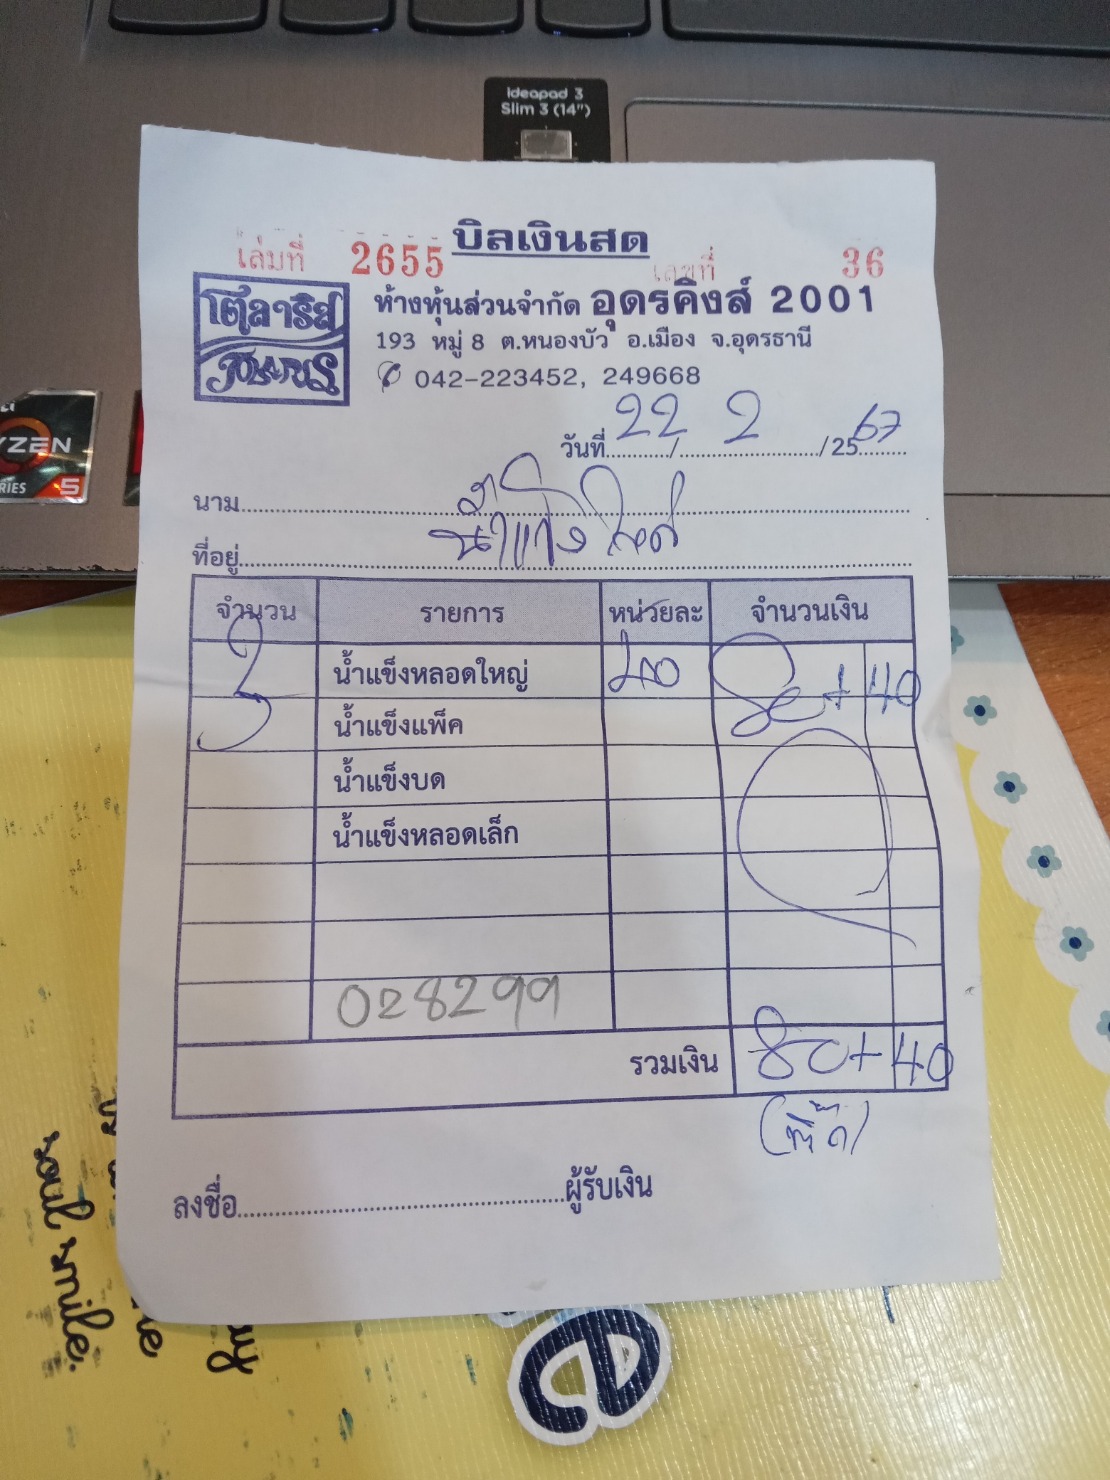 ideapad 3
Slim 3 (14")
บิลเงินสด
เล่มที่ 2655 เลขที่ 36
โตลาริส
POLARIS
ห้างหุ้นส่วนจำกัด อุดรคิงส์ 2001
193 หมู่ 8 ต.หนองบัว อ.เมือง จ.อุดรธานี
042-223452, 249668
วันที่ 22 / 2 / 2567
นาม
น้ำแข็ง
ที่อยู่
จำนวน รายการ หน่วยละ จำนวนเงิน
3 น้ำแข็งหลอดใหญ่ 40 80+40
น้ำแข็งแพ็ค
น้ำแข็งบด
น้ำแข็งหลอดเล็ก
028299
รวมเงิน 80+40
ลงชื่อ ผู้รับเงิน
YZEN
RIES 5
soul smile.